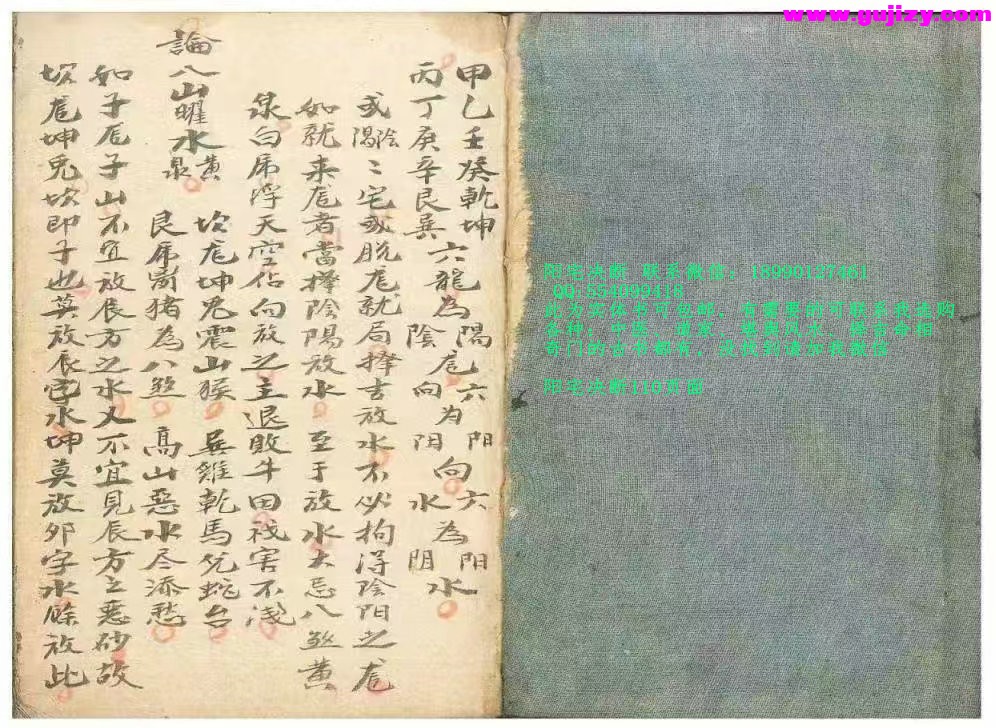 www.gujizy.com
甲乙壬癸乾坤
丙丁庚辛艮巽
六龍為陽陰龙六向为阳阳向六水為阳阴水
或陰陽二宅或脱龙就局擇吉放水不必拘得陰阳之龙
如就来龙者當擇陰陽放水至于放水大忌八煞黄
泉白虎浮天空佔向放之主退敗牛田伐害不浅
論八山曜水黄泉
坎龙坤兔震山猴 巽雞乾馬兑蛇台
艮虎离猪為八煞 高山惡水尽添愁
如子龙子山不宜放辰方之水又不宜見辰方之惡砂故
坎龙坤兔坎即子也莫放辰字水坤莫放卯字水餘放此
阳宅决断 联系微信：18990127461
QQ:554999418
此为实体书可包邮，有需要的可联系我选购
各种，中医，道家，堪舆风水，择吉命相
奇门的古书都有，没找到请加我微信
阳宅决断110页图